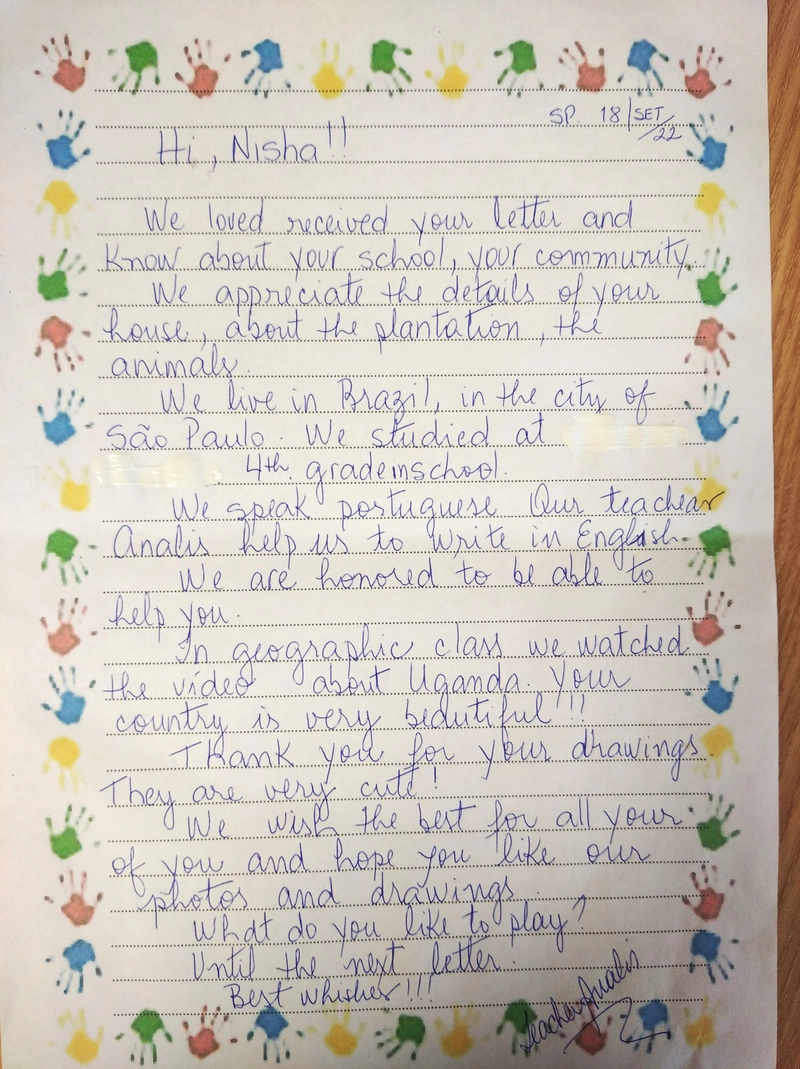 SP. 18/SET/22
Hi, Nisha!!
We loved received your letter and
Know about your school, your community.
We appreciate the details of your
house, about the plantation, the
animals.
We live in Brazil, in the city of
São Paulo. We studied at
4th. grade in school.
We speak portuguese. Our teachear
Analis help us to write in English.
We are honored to be able to
help you.
In geographic class we watched
the vídeo about Uganda. Your
country is very beautiful!!!
Thank you for your drawings.
They are very cute!
We wish the best for all your
of you and hope you like our
photos and drawings.
What do you like to play?
Until the next letter.
Best whisher!!!
Teacher Analis